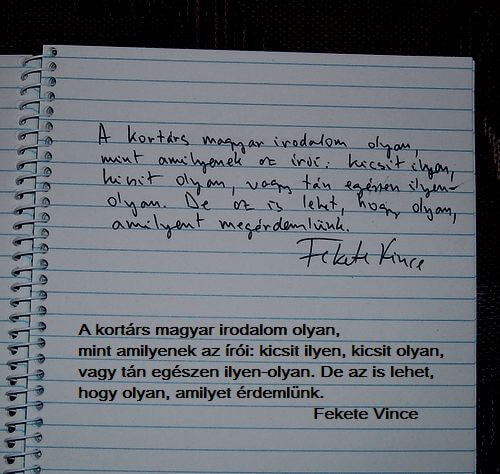 A kortárs magyar irodalom olyan,
mint amilyenek az írói: kicsit ilyen,
kicsit olyan, vagy tán egészen ilyen-
olyan. De az is lehet, hogy olyan,
amilyent megérdemlünk.
Fekete Vince
A kortárs magyar irodalom olyan,
mint amilyenek az írói: kicsit ilyen, kicsit olyan,
vagy tán egészen ilyen-olyan. De az is lehet,
hogy olyan, amilyet érdemlünk.
Fekete Vince